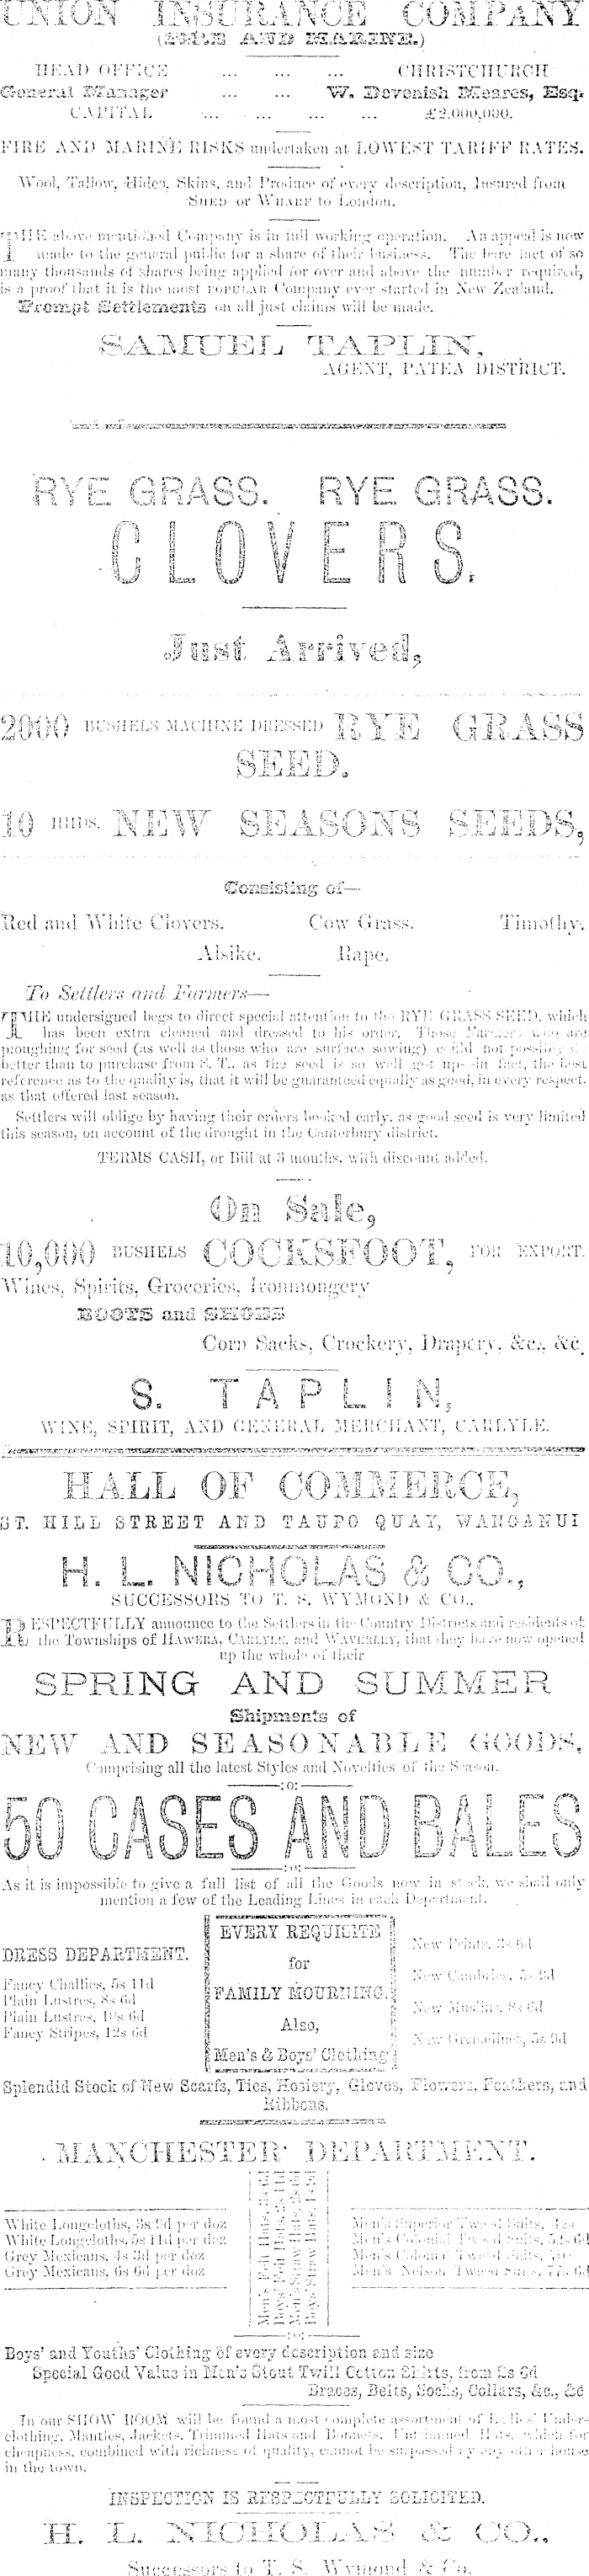 UNION INSURANCE COMPANY
(FIRE AND MARINE.)
HEAD OFFICE ... ... ... CHRISTCHURCH
General Manager ... ... W. Devenish Meares, Esq.
CAPITAL ... ... ... ... £2,000,000.
FIRE AND MARINE RISKS undertaken at LOWEST TARIFF RATES.
Wool, Tallow, Hides, Skins, and Produce of every description, Insured from
SHED or WHARF to London.
THE above mentioned Company is in full working operation. An appeal is now
made to the general public for a share of their business. The bare fact of so
many thousands of shares being applied for over and above the number required,
is a proof that it is the most POPULAR Company ever started in New Zealand.
Prompt Settlements on all just claims will be made.
SAMUEL TAPLIN,
AGENT, PATEA DISTRICT.
RYE GRASS. RYE GRASS.
CLOVERS.
Just Arrived,
2000 BUSHELS MACHINE DRESSED RYE GRASS
SEED.
10 HHDS. NEW SEASONS SEEDS,
Consisting of—
Red and White Clovers. Cow Grass. Timothy.
Alsike. Rape.
To Settlers and Farmers—
THE undersigned begs to direct special attention to the RYE GRASS SEED, which
has been extra cleaned and dressed to his order. Those Farmers who are
ploughing for seed (as well as those who are surface sowing) could not possibly do
better than to purchase from S. T., as the seed is so well got up—in fact, the best
reference as to the quality is, that it will be guaranteed equally as good, in every respect,
as that offered last season.
Settlers will oblige by having their orders booked early, as good seed is very limited
this season, on account of the drought in the Canterbury district.
TERMS CASH, or Bill at 3 months, with discount added.
On Sale,
10,000 BUSHELS COCKSFOOT, FOR EXPORT.
Wines, Spirits, Groceries, Ironmongery
BOOTS and SHOES
Corn Sacks, Crockery, Drapery, &c., &c.
S. TAPLIN,
WINE, SPIRIT, AND GENERAL MERCHANT, CARLYLE.
HALL OF COMMERCE,
ST. HILL STREET AND TAUPO QUAY, WANGANUI
H. L. NICHOLAS & CO.,
SUCCESSORS TO T. S. WYMOND & CO.,
RESPECTFULLY announce to the Settlers in the Country Districts and residents of
the Townships of HAWERA, CARLYLE, and WAVERLEY, that they have now opened
up the whole of their
SPRING AND SUMMER
Shipments of
NEW AND SEASONABLE GOODS,
Comprising all the latest Styles and Novelties of the Season.
:o:
50 CASES AND BALES
:o:
As it is impossible to give a full list of all the Goods now in stock, we shall only
mention a few of the Leading Lines in each Department.
DRESS DEPARTMENT.
Fancy Challies, 5s 11d
Plain Lustres, 8s 6d
Plain Lustres, 10s 6d
Fancy Stripes, 12s 6d
EVERY REQUISITE
for
FAMILY MOURNING.
Also,
Men's & Boys' Clothing
New Prints,
New Cambrics,
New Muslins, 8s 6d
New Grenadines, 5s 9d
Splendid Stock of New Scarfs, Ties, Hosiery, Gloves, Flowers, Feathers, and
Ribbons.
MANCHESTER DEPARTMENT.
White Longcloths, 3s 9d per doz
White Longcloths, 5s 11d per doz
Grey Mexicans, 4s 3d per doz
Grey Mexicans, 6s 6d per doz
Men's Felt Hats,
Boys' Felt Hats,
Men's Straw Hats,
Boys' Straw Hats,
Men's Superior Tweed Suits, 42s
Men's Colonial Tweed Suits, 52s 6d
Men's Colonial Tweed Suits,
Men's Nelson Tweed Suits, 77s 6d
:o:
Boys' and Youths' Clothing of every description and size
Special Good Value in Men's Stout Twill Cotton Shirts, from 2s 6d
Braces, Belts, Socks, Collars, &c., &c
In our SHOW ROOM will be found a most complete assortment of Ladies' Under-
clothing, Mantles, Jackets, Trimmed Hats and Bonnets, Untrimmed Hats, which for
cheapness, combined with richness of quality, cannot be surpassed by any other house
in the town.
INSPECTION IS RESPECTFULLY SOLICITED.
H. L. NICHOLAS & CO.,
Successors to T. S. Wymond & Co.